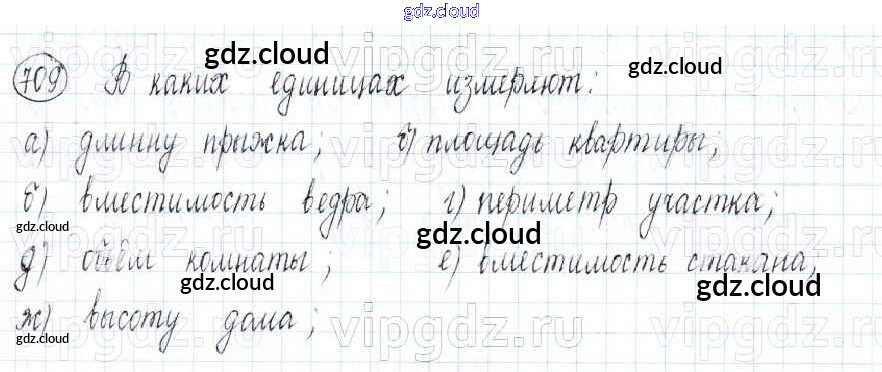 gdz.cloud
709 В каких единицах измеряют:
gdz.cloud gdz.cloud
а) длинну прыжка; в) площадь квартиры;
б) вместимость ведра; г) периметр участка;
gdz.cloud gdz.cloud
д) объём комнаты; е) вместимость стакана;
gdz.cloud gdz.cloud
ж) высоту дома;
gdz.cloud
vipgdz vipgdz vipgdz